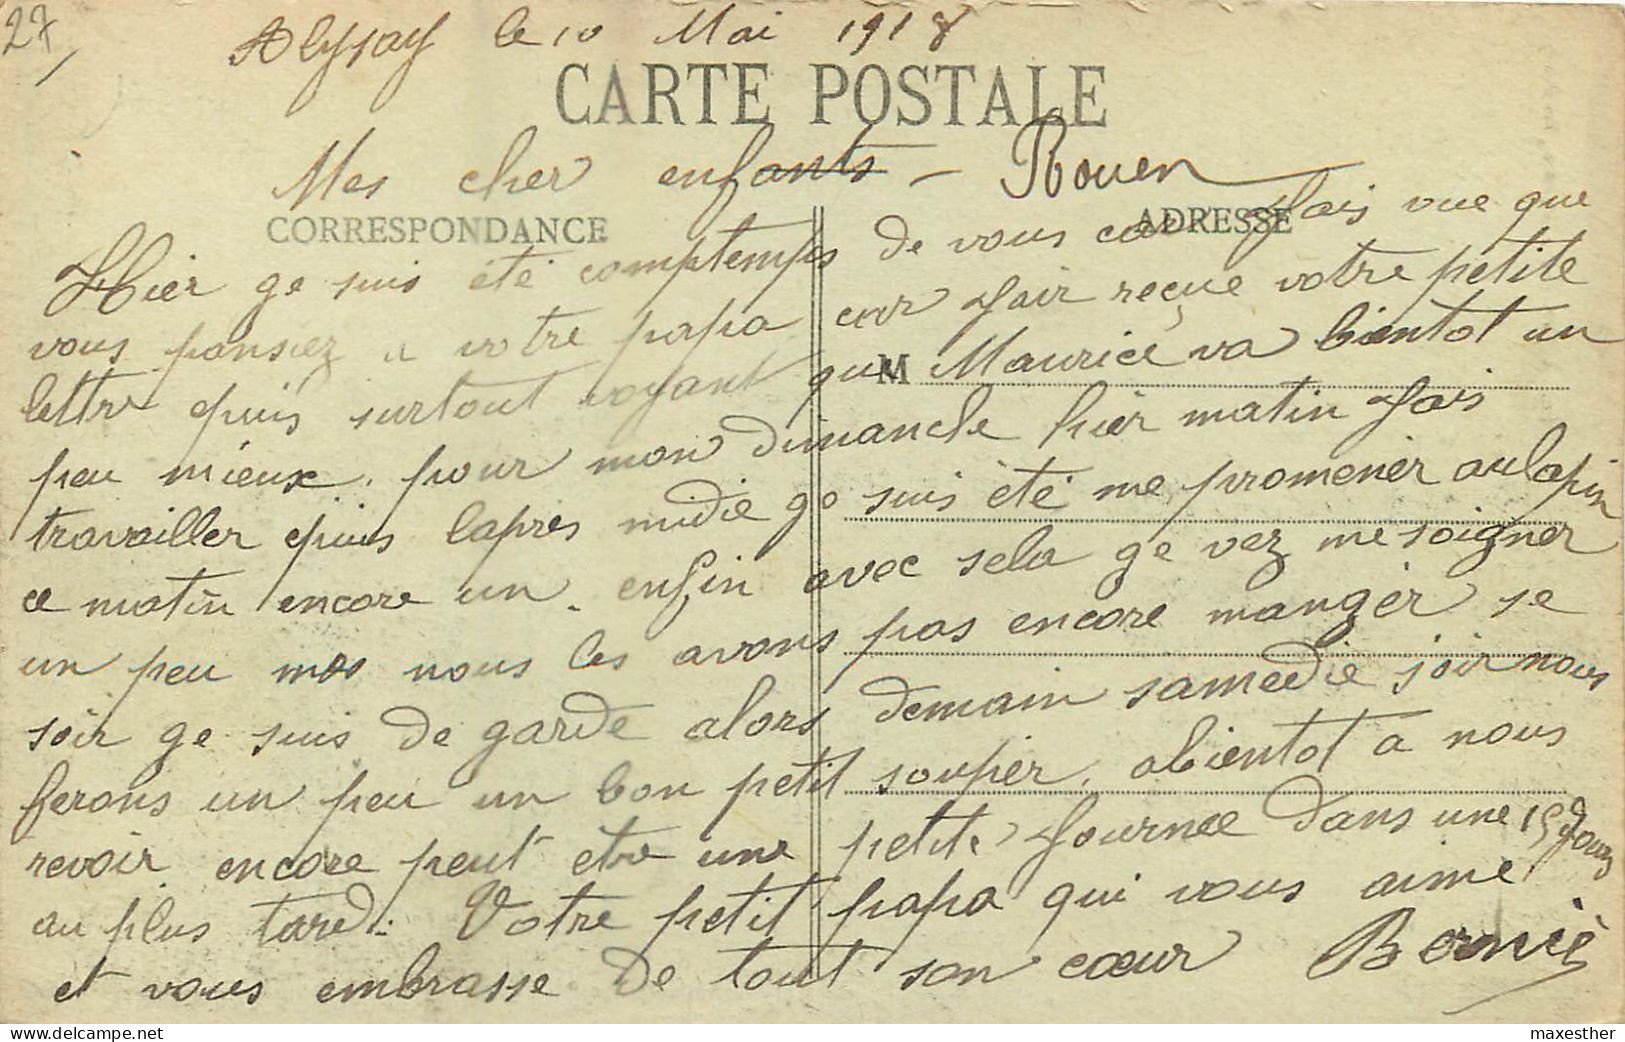 27
Alysay le 10 Mai 1918
CARTE POSTALE
Mes cher enfants - Rouen
CORRESPONDANCE ADRESSE
Hier ge suis été comptemps de vous car Jais vue que
vous pansiez a votre papa car Jair reçue votre petite
lettre epuis surtout voyant que Maurice va bientot un
M
peu mieux. pour mon dimanche hier matin Jais
travailler epuis lapres midie ge suis été me promener au lapin
ce matin encore un. enfin avec sela ge vez me soigner
un peu mes nous les avons pas encore manger se
soir ge suis de garde alors demain samedie soir nous
ferons un peu un bon petit souper. abientot a nous
revoir encore peut etre une petite Journee dans une 15 Jours
au plus tard. Votre petit papa qui vous aime
et vous embrasse de tout son cœur Bernié
maxesther